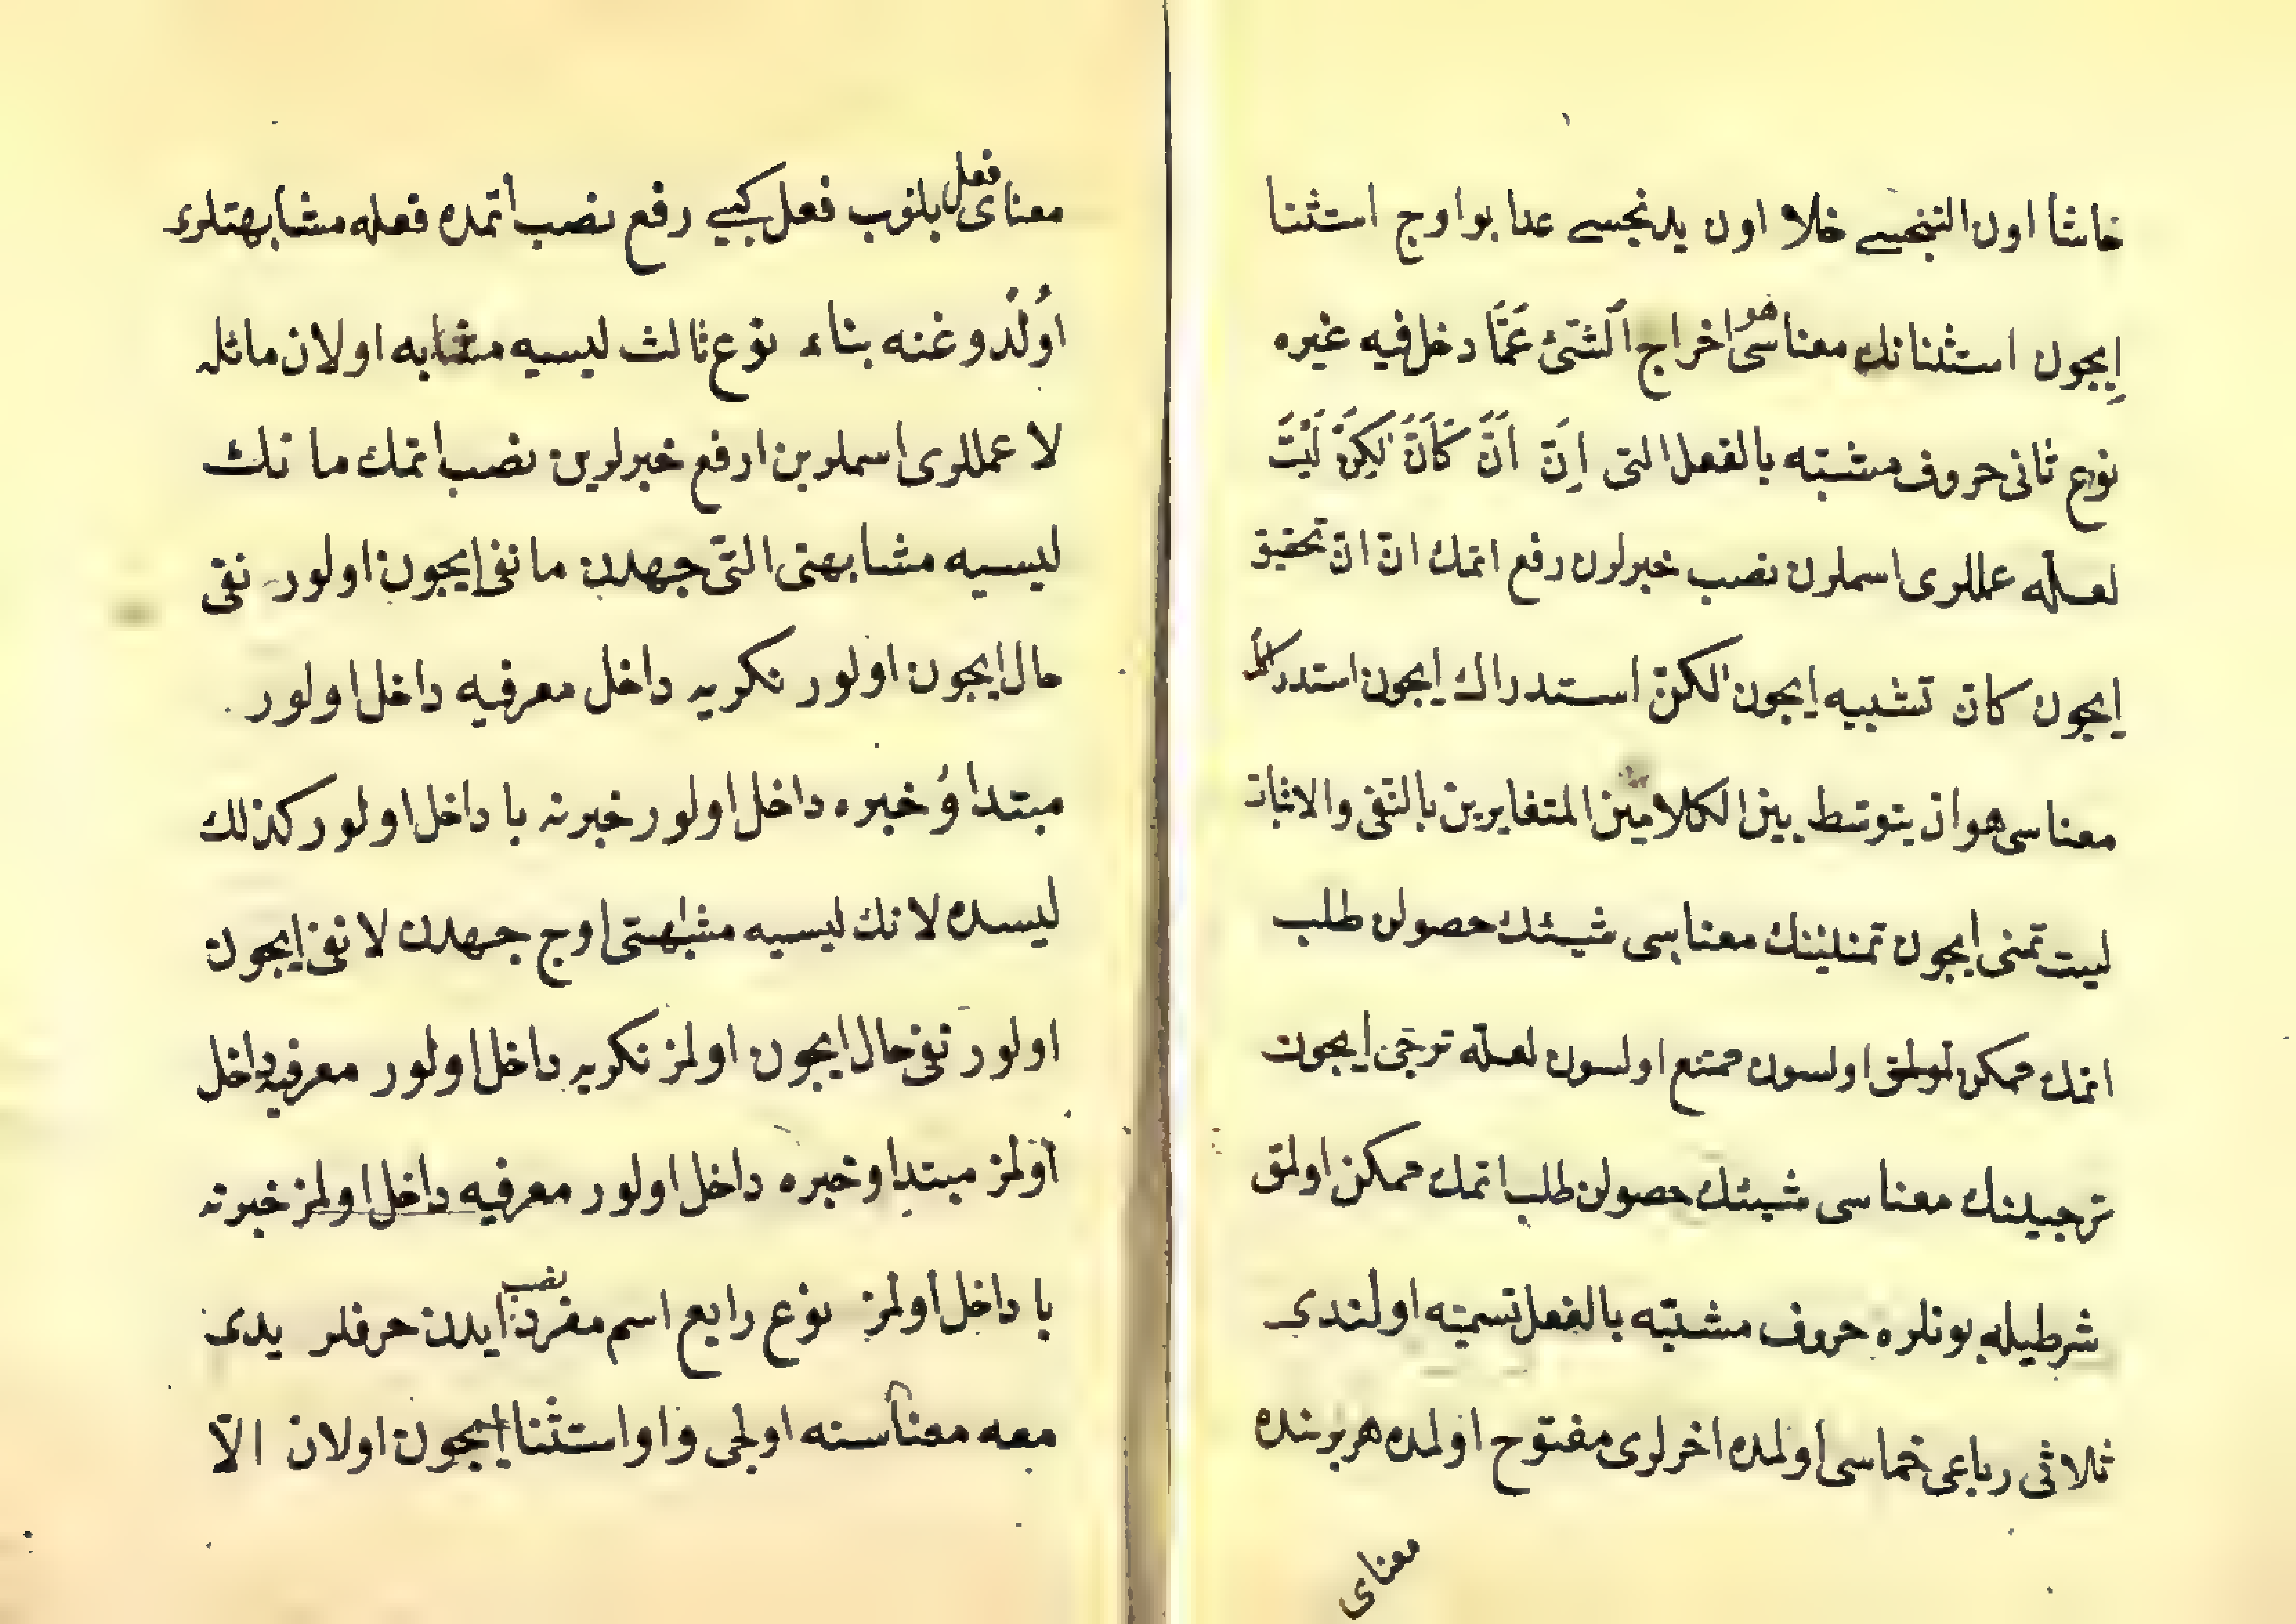 خاشا اون التنجسے خلا اون يدنجسے عدا بو اوج استثنا
اِيجون استثنانك معناسى هو اخراج اَلشئ عَمَّا دخل فيه غيره
نوع ثانى حروف مشبته بالفعل التى اِنَّ اَنَّ كَاَنَّ لٰكِنَّ لَيْتَ
لعله عمللرى اسملرن نصب خبرلرن رفع اتمك انّ انّ تحقيق
اِيجون كانّ تشبيه اِيجون لٰكنّ استدراك اِيجون استدراكك
معناسى هو ان يتوسّط بين الكلامين المتغايرين بالنفى والاثبات
ليت تمنى اِيجون تمنلينك معناسى شيئك حصولن طلب
اتمك ممكن اولسون ممتنع اولسون لعلّه ترجّى اِيجون
ترجيلنك معناسى شيئك حصولن طلب اتمك ممكن اولمق
شرطيله بونلره حروف مشبّه بالفعل تسميّه اولندى
ثلاثى رباعى خماسى اولمده اخرلرى مفتوح اولمده هر برنده
معناى
معناى فعل بلنوب فعل كبے رفع نصب اتمده فعله مشابهتلرى
اُولْدوغنه بناء نوع ثالث ليسيه مشابه اولان مائله
لا عمللرى اسملرين ارفع خبرلرين نصب اتمك ما نك
ليسيه مشابهتى التّى جهدن ما نفى اِيجون اولور نفى
حال اِيجون اولور نكريه داخل معرفيه داخل اولور
مبتدا وُ خبره داخل اولور خبرنه با داخل اولور كذلك
ليسده لا نك ليسيه مشابهتى اوج جهدن لا نفى اِيجون
اولور نفى حال اِيجون اولمز نكريه داخل اولور معرفيه داخل
اولمز مبتدا و خبره داخل اولور معرفيه داخل اولمز خبرنه
با داخل اولمز نوع رابع اسم مفرد نصب ايدن حرفلر يدى
معه معناسنه اولجى واو استثنا اِيجون اولان الّا